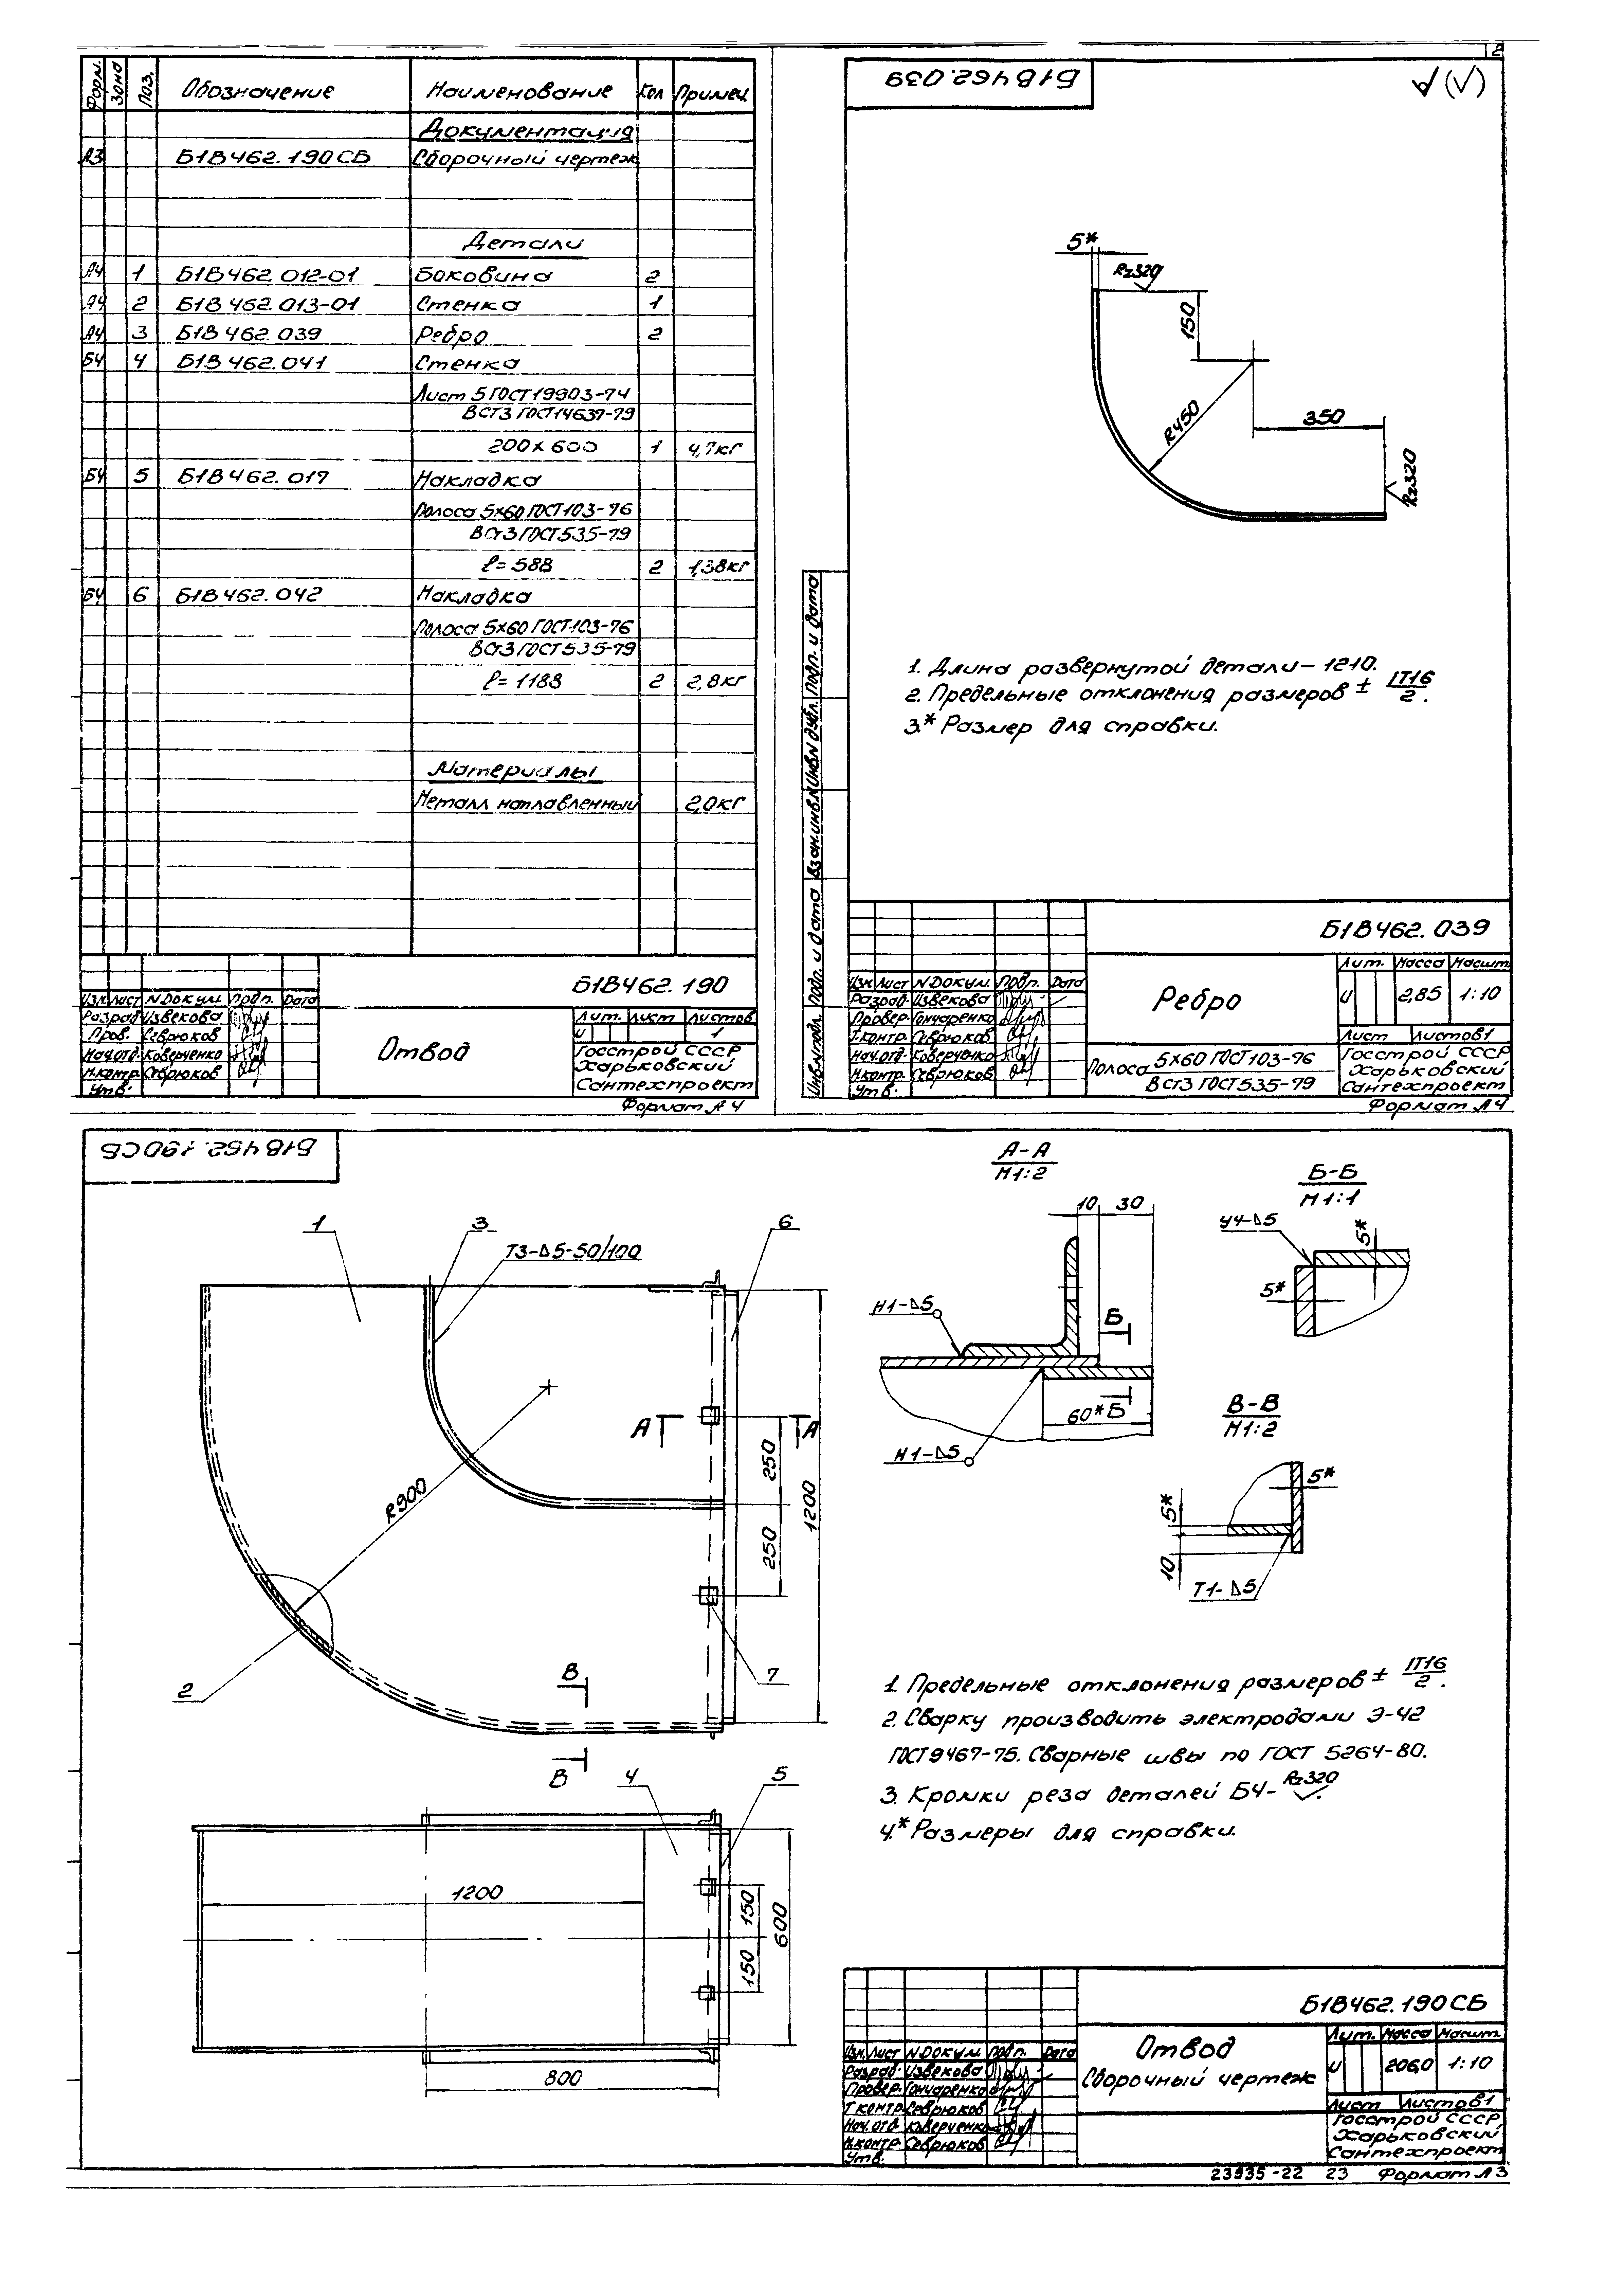 2
Форм. Зона Поз. Обозначение Наименование Кол Примеч
Документация
А3 Б1В462.190СБ Сборочный чертеж
Детали
А4 1 Б1В462.012-01 Боковина 2
А4 2 Б1В462.013-01 Стенка 1
А4 3 Б1В462.039 Ребро 2
Б4 4 Б1В462.041 Стенка
Лист 5 ГОСТ19903-74
ВСТ3 ГОСТ14637-79
200х600 1 4,7кг
Б4 5 Б1В462.017 Накладка
Полоса 5х60 ГОСТ103-76
ВСт3 ГОСТ535-79
ℓ=588 2 1,38кг
Б4 6 Б1В462.042 Накладка
Полоса 5х60 ГОСТ103-76
ВСт3 ГОСТ535-79
ℓ=1188 2 2,8кг
Материалы
Металл наплавленный 2,0кг
Б1В462.190
Изм. Лист N Докум. Подп. Дата
Разраб. Извекова
Пров. Севрюков
Нач.отд. Коверченко
Н.контр. Севрюков
Утв.
Отвод
Лит. Лист Листов
И 1
Госстрой СССР
Харьковский
Сантехпроект
Формат А4
Б1В462.039
(√)
5*
Rz320
150
R450
350
Rz320
1. Длина развернутой детали-1210.
2. Предельные отклонения размеров ± IT16/2.
3.* Размер для справки.
Инв.Nподл. Подп. и дата Взам.инв.N Инв.N дубл. Подп. и дата
Б1В462.039
Изм. Лист N Докум. Подп. Дата
Разраб. Извекова
Провер. Гончаренко
Т.контр. Севрюков
Нач.отд. Коверченко
Н.контр. Севрюков
Утв.
Ребро
Лит. Масса Масшт.
И 2,85 1:10
Лист Листов1
Полоса 5х60 ГОСТ103-76
ВСт3 ГОСТ535-79
Госстрой СССР
Харьковский
Сантехпроект
Формат А4
Б1В462.190СБ
1
3
6
Т3-Δ5-50/100
R900
А А
250
250
1200
2
В
В
7
4
5
1200
150
150
600
800
А-А
М1:2
10 30
Н1-Δ5
Б
60* Б
Н1-Δ5
Б-Б
М1:1
У4-Δ5
5*
5*
В-В
М1:2
5*
5*
10
Т1-Δ5
1. Предельные отклонения размеров ± IT16/2.
2. Сварку производить электродами Э-42
ГОСТ9467-75. Сварные швы по ГОСТ 5264-80.
3. Кромки реза деталей Б4- Rz320.
4.* Размеры для справки.
Б1В462.190СБ
Изм. Лист N Докум. Подп. Дата
Разраб. Извекова
Провер. Гончаренко
Т контр. Севрюков
Нач.отд. Коверченко
Н.контр. Севрюков
Утв.
Отвод
Сборочный чертеж
Лит. Масса Масшт.
И 206,0 1:10
Лист Листов1
Госстрой СССР
Харьковский
Сантехпроект
23935-22 23 Формат А3